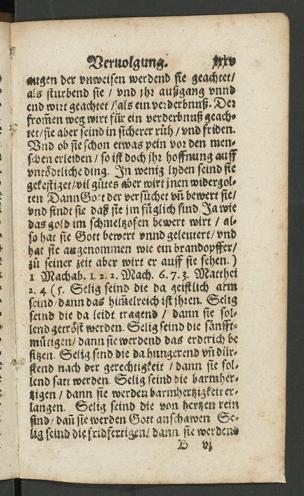 Veruolgung. xxv
augen der vnweisen werdend sie geachtet/
als sturbend sie / vnd jhr außgang vnnd
end wirt geachtet / als ein verderbnuß. Der
from̃en weg wirt für ein verderbnuß geach-
tet/ sie aber seind in sicherer rüh / vnd friden.
Vnd ob sie schon etwas pein vor den men-
schen erleiden / so ist doch jhr hoffnung auff
vntödtliche ding. In wenig lyden seind sie
gekestiget/ vil gütes aber wirt jnen widergol-
ten Dann Gott der versüchet vñ bewert sie/
vnd findt sie daß sie jm füglich sind. Ja wie
das gold im schmeltzofen bewert wirt / al-
so hat sie Gott bewert vnnd geleutert/ vnd
hat sie angenommen wie ein brandopffer/
zü seiner zeit aber wirt er auff sie sehen. )
1 Machab. 1. 2. 2. Mach. 6. 7. 3. Matthei
2. 4 (5. Selig seind die da geistlich arm
seind dann das him̃elreich ist jhren. Selig
seind die da leidt tragend / dann sie sol-
lend getröst werden. Selig seind die sänfft-
mütigen/ dann sie werdend das erdtrich be
sitzen. Selig sind die da hungerend vñ dür-
stend nach der gerechtigkeit / dann sie sol-
lend satt werden. Selig seind die barmher-
tzigen / dann sie werden barmhertzigkeit er-
langen. Selig seind die von hertzen rein
sind/ dañ sie werden Gott anschawen. Se-
lig seind die fridfertigen/ dann sie werdens
B vj